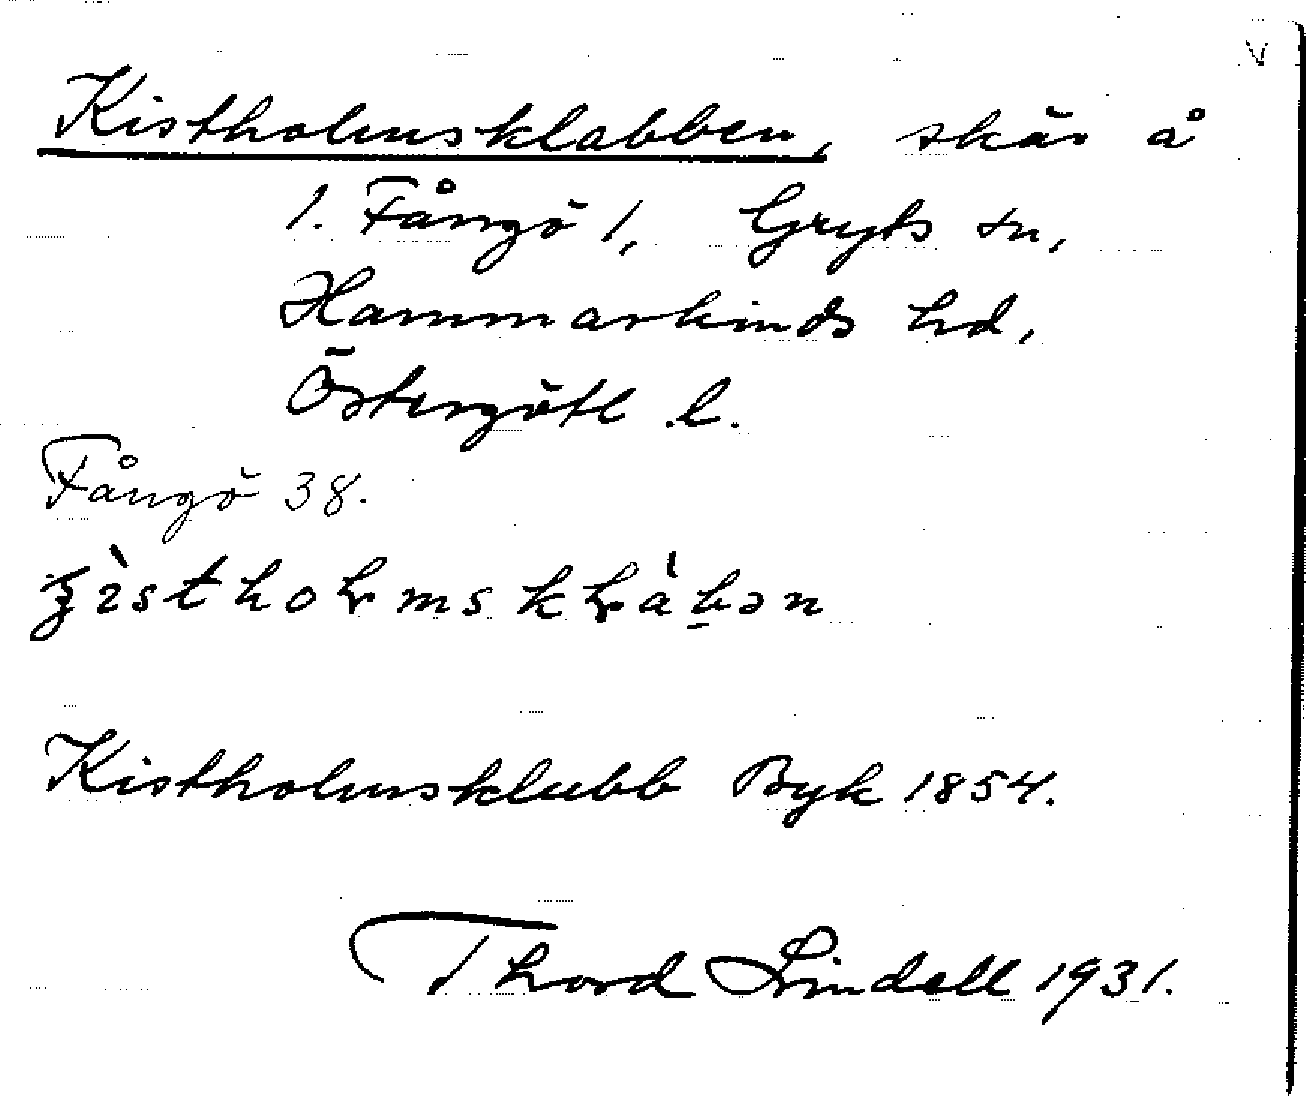 V
Kistholmsklabben, skär å
1. Fångö 1, Gryts sn,
Hammarkinds hd,
Östergötl. l.
Fångö 38.
Kistholmsklubb Byk 1854.
Thord Lindell 1931.